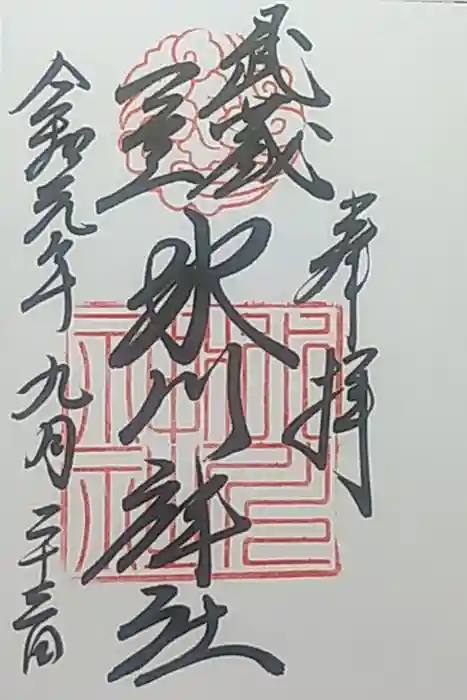 奉拝
武蔵
一宮
氷川神社
令和元年九月二十三日